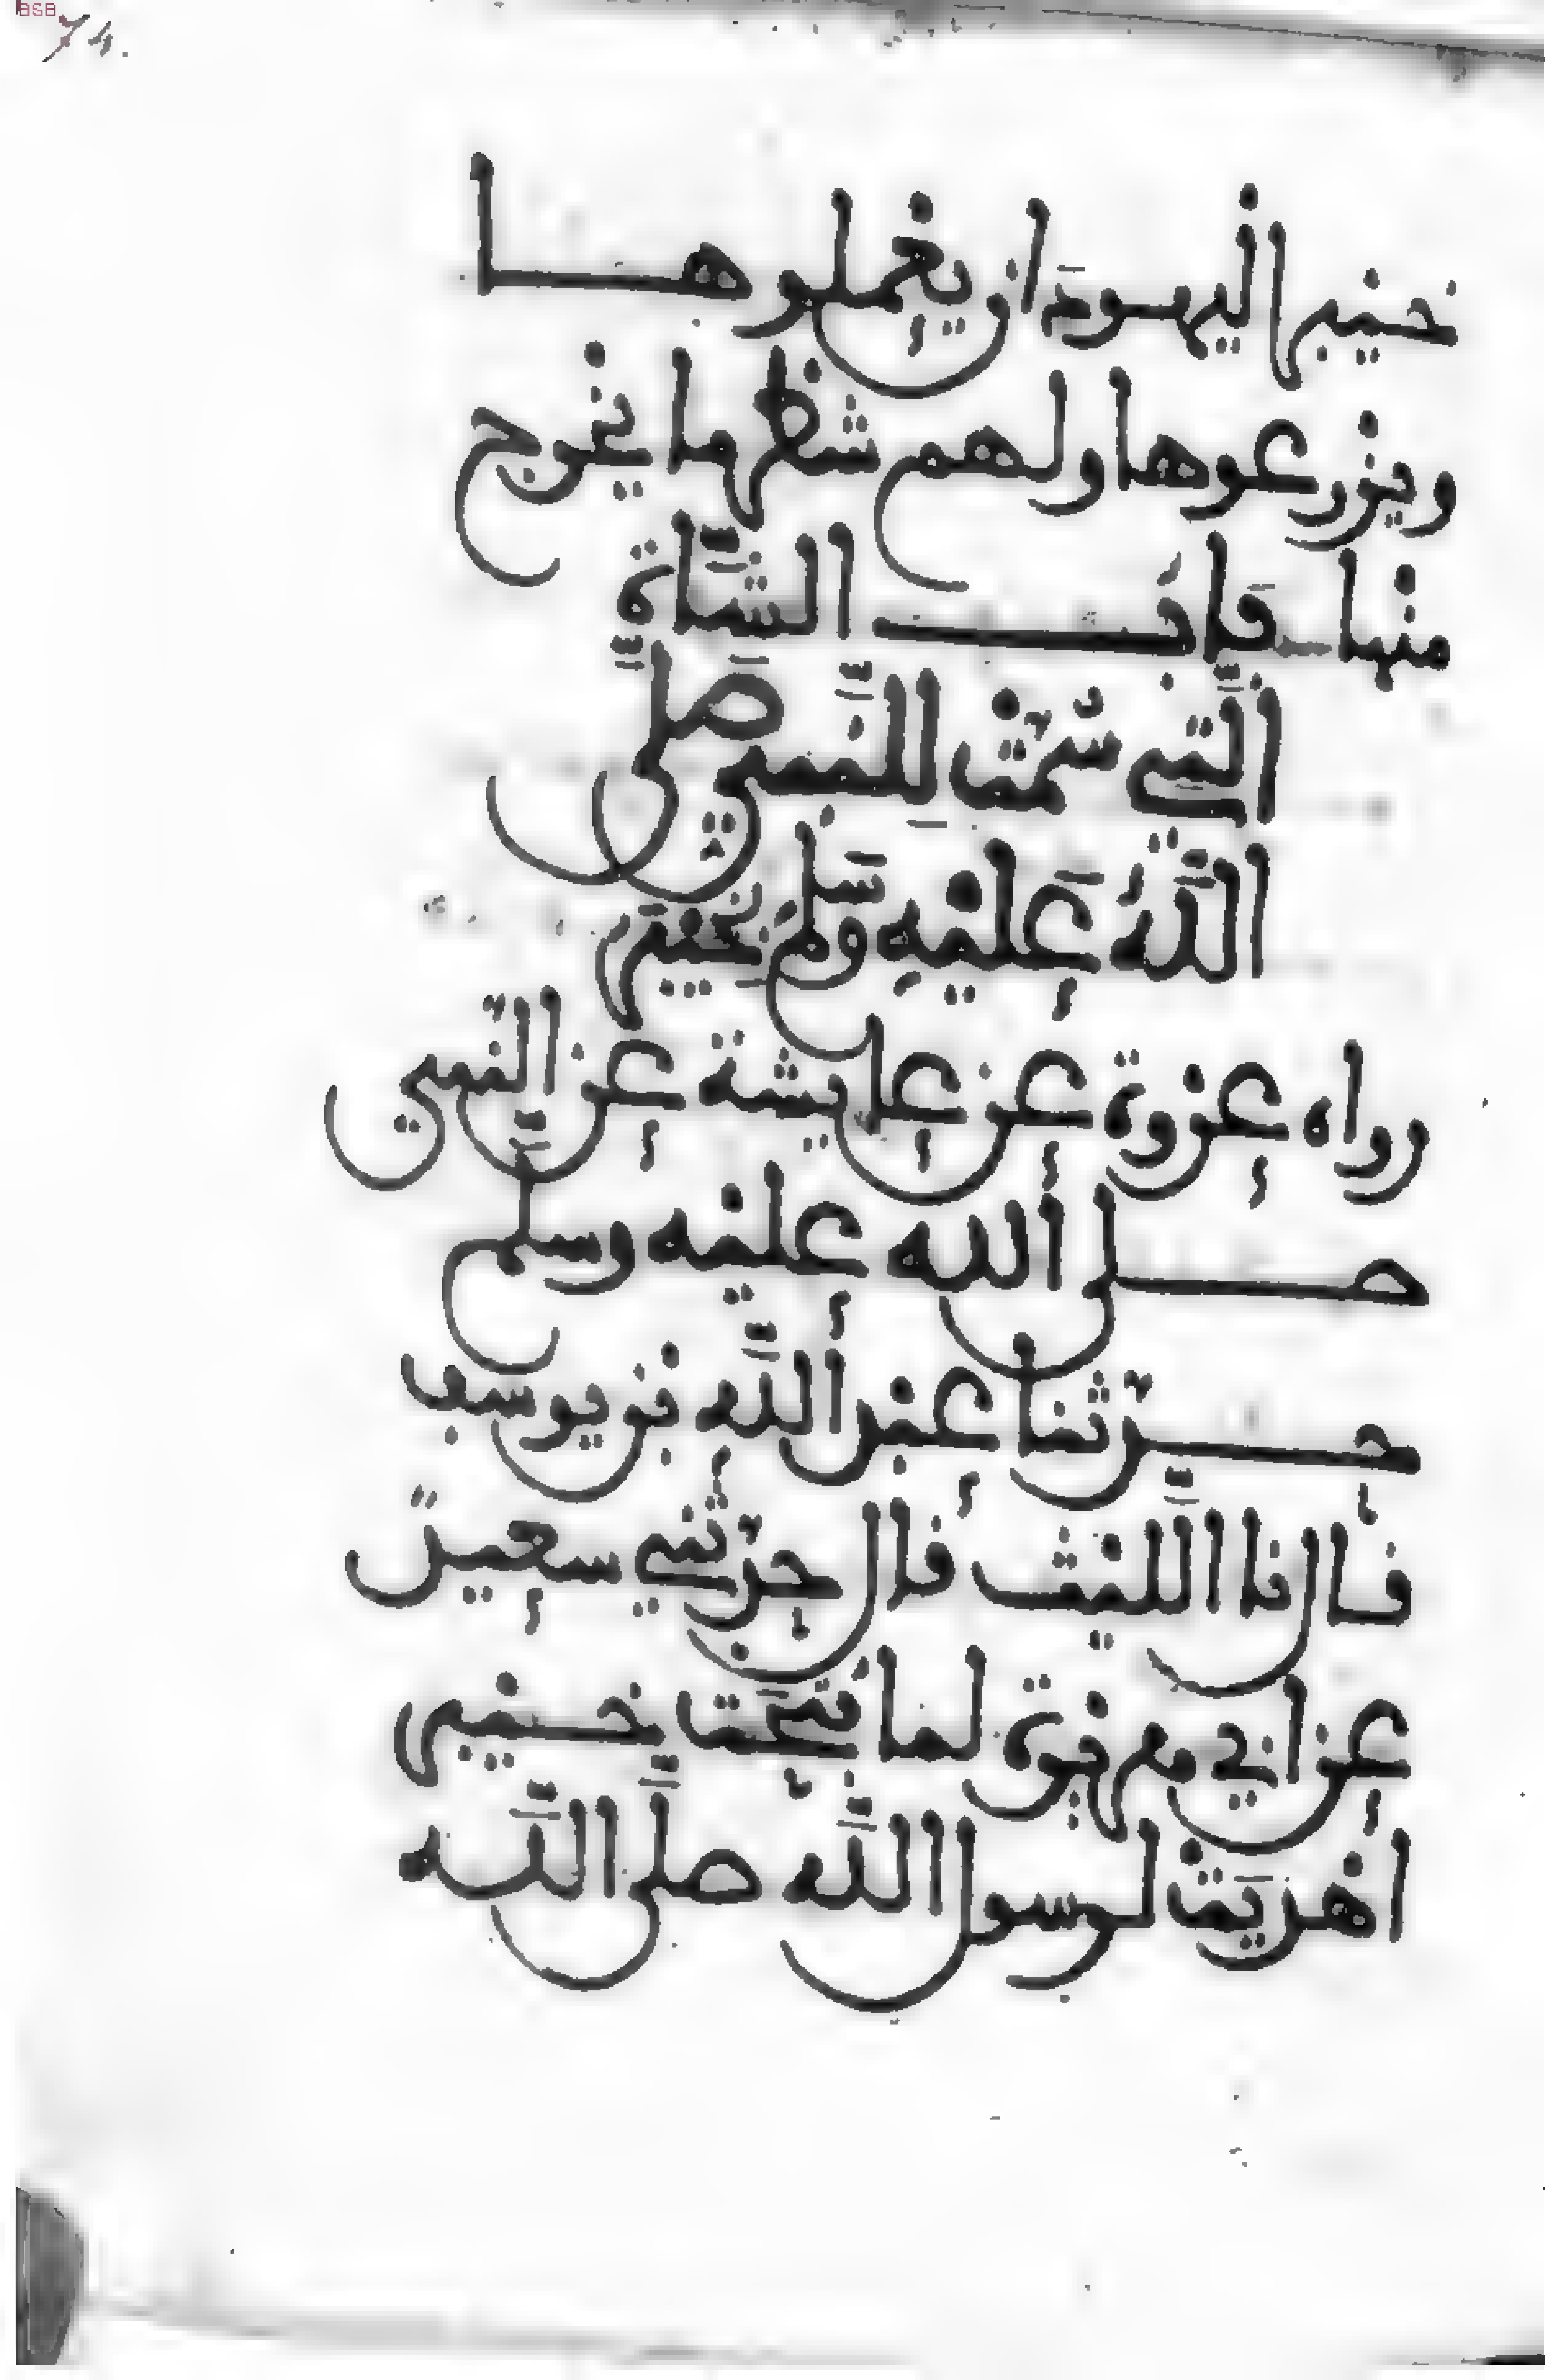 74.
خيبر اليهود ان يعملوها
ويزرعوها ولهم شطر ما يخرج
منها باب الشاة
التي سمت للنبي صلى
الله عليه وسلم بخيبر
رواه عروة عن عايشة عن النبي
صلى الله عليه وسلم
حدثنا عبد الله بن يوسف
قال نا الليث قال حدثني سعيد
عن ابي هريرة لما فتحت خيبر
اهديت لرسول الله صلى الله